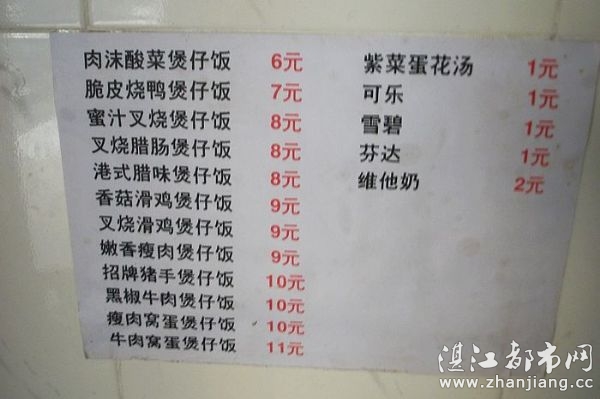 肉沫酸菜煲仔饭 6元
脆皮烧鸭煲仔饭 7元
蜜汁叉烧煲仔饭 8元
叉烧腊肠煲仔饭 8元
港式腊味煲仔饭 8元
香菇滑鸡煲仔饭 9元
叉烧滑鸡煲仔饭 9元
嫩香瘦肉煲仔饭 9元
招牌猪手煲仔饭 10元
黑椒牛肉煲仔饭 10元
瘦肉窝蛋煲仔饭 10元
牛肉窝蛋煲仔饭 11元
紫菜蛋花汤 1元
可乐 1元
雪碧 1元
芬达 1元
维他奶 2元
湛江都市网
www.zhanjiang.cc